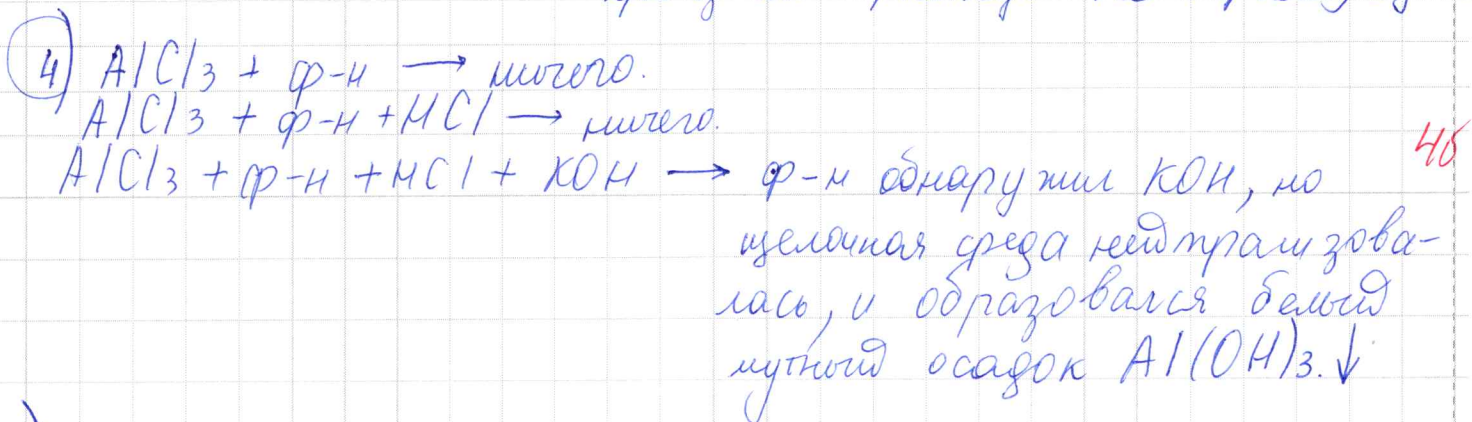 4) AlCl3 + ф-н → ничего.
AlCl3 + ф-н + HCl → ничего.
AlCl3 + ф-н + HCl + KOH → ф-н обнаружил KOH, но
4б
щелочная среда нейтрализова-
лась, и образовался белый
мутный осадок Al(OH)3.↓